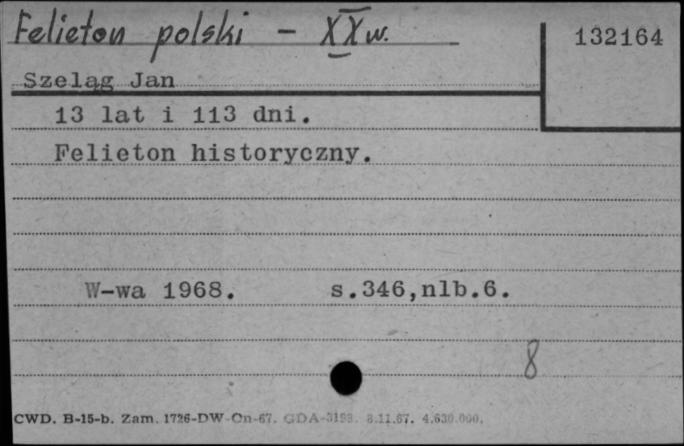 Felieton polski - XX w.
132164
Szeląg Jan
13 lat i 113 dni.
Felieton historyczny.
W-wa 1968. s.346,nlb.6.
8
CWD. B-15-b. Zam. 1726-DW-Cn-67. GDA-3198. 8.11.67. 4.630.000.